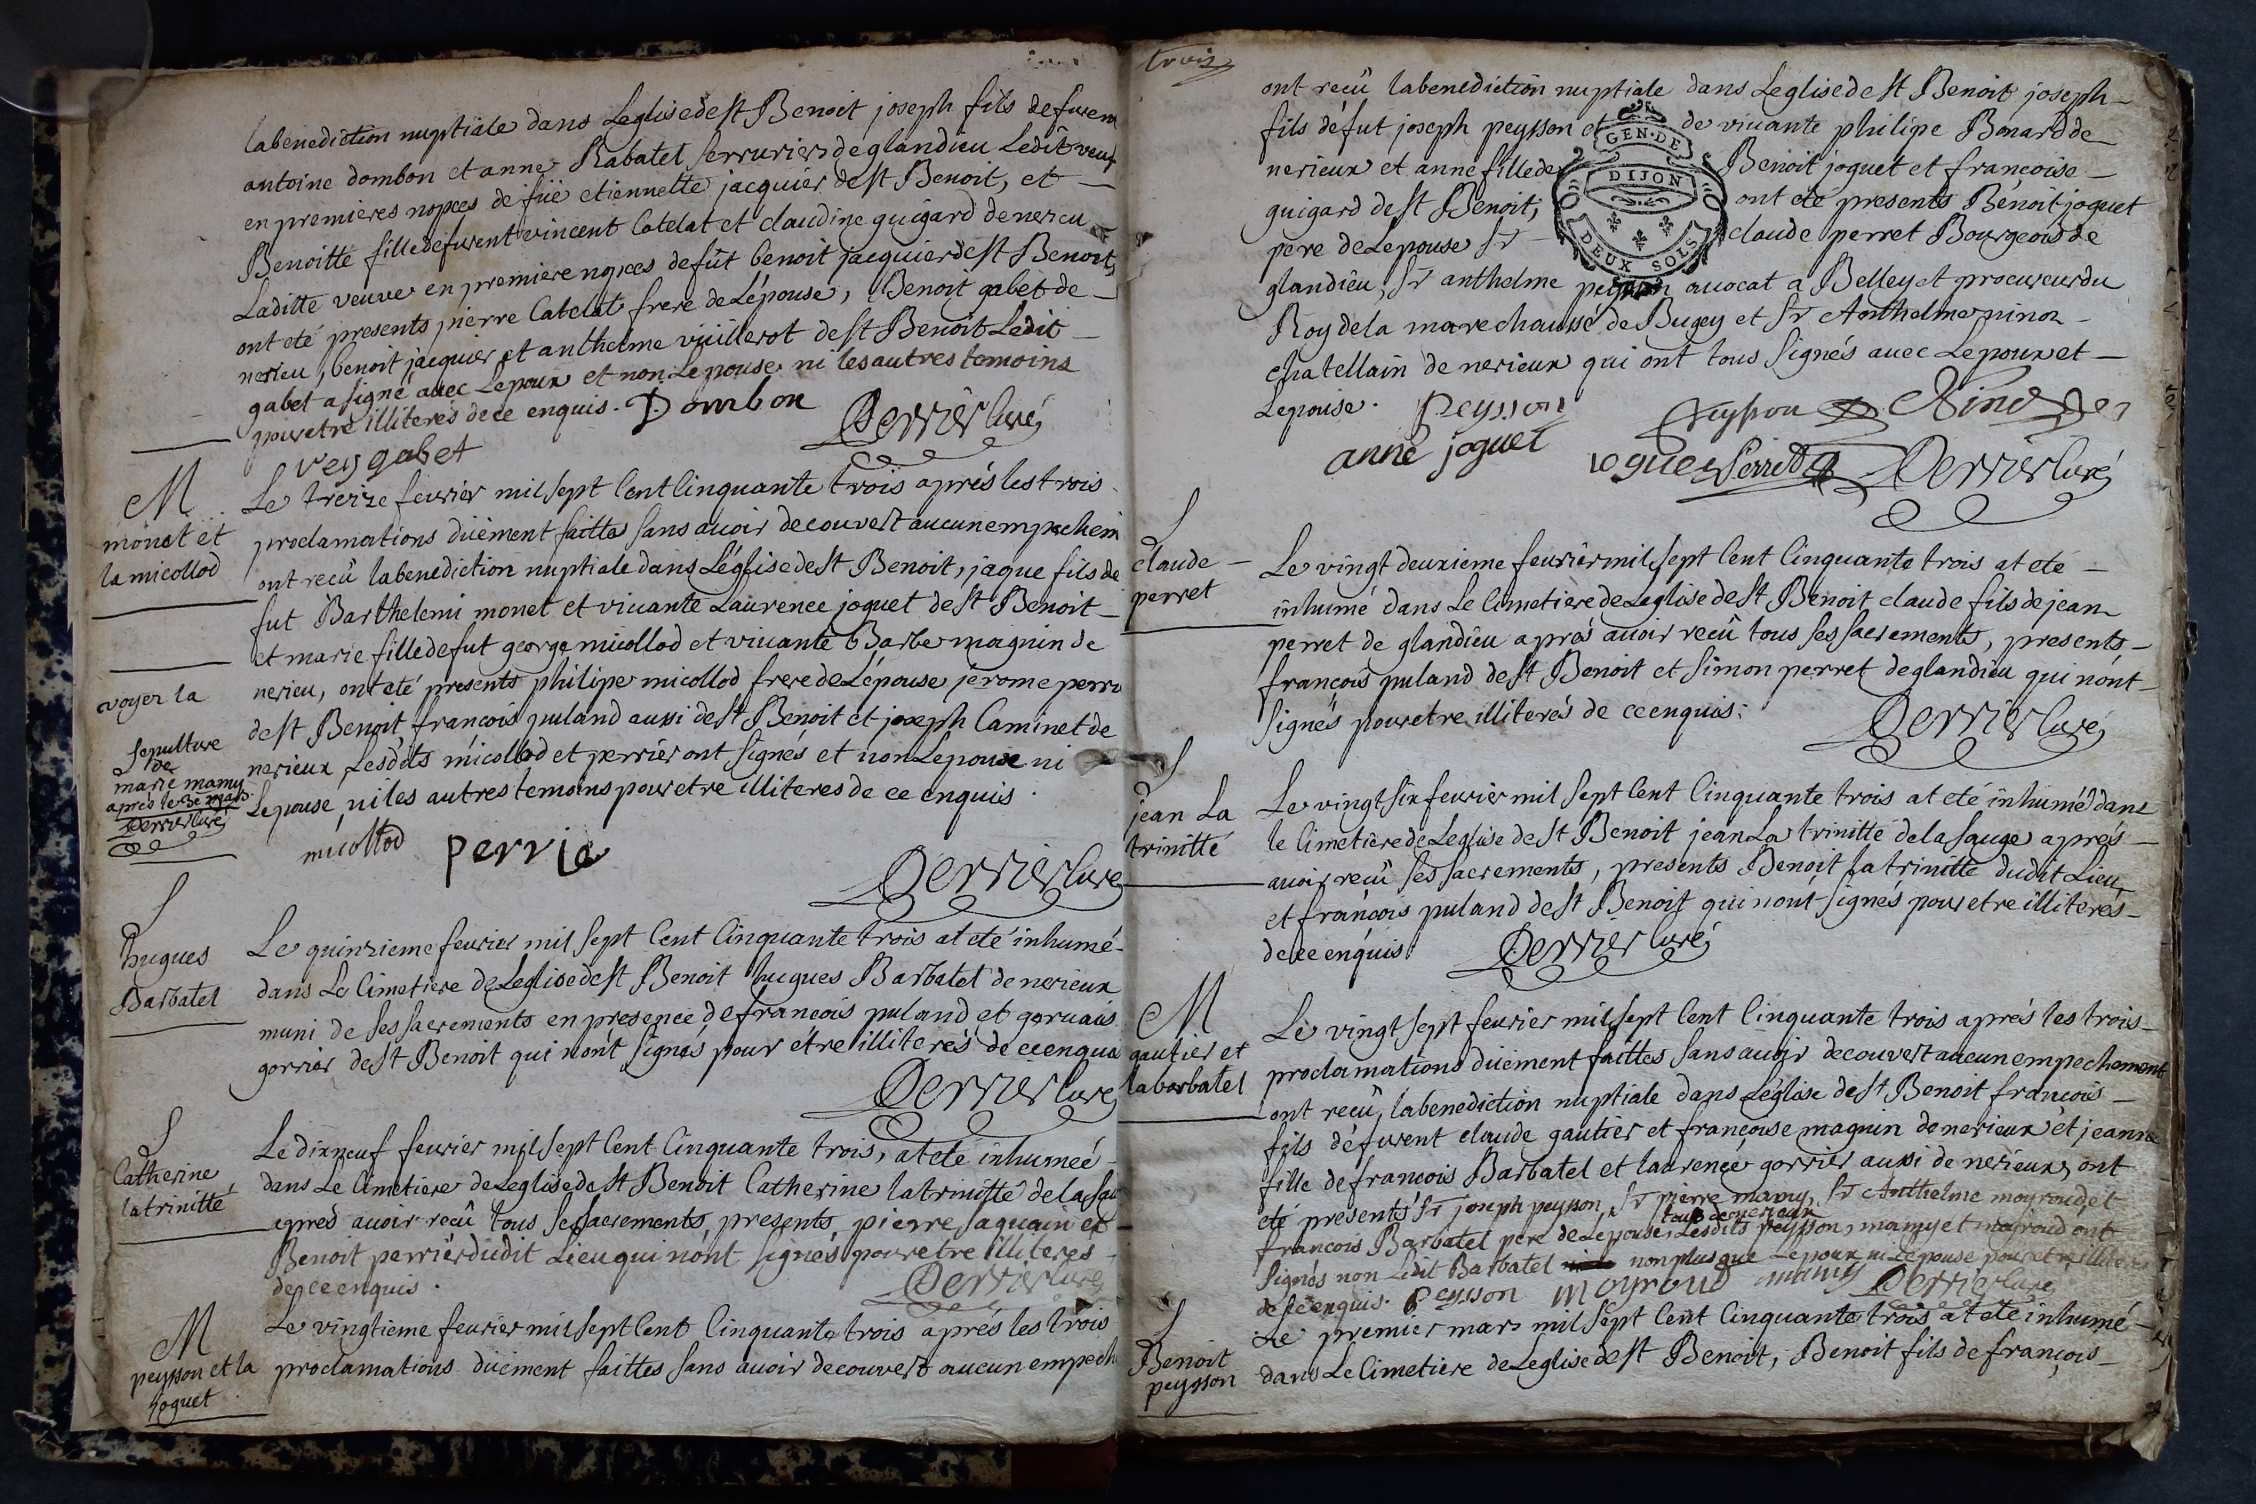 labenediction nuptiale dans Leglise de st Benoit joseph fils defurem
antoine dombon et anne Rabatel serrurier de glandieu Ledit veuf
en premieres nopces de füe etiennette jacquier de st Benoit, et
Benoitte fille defurent vincent Catelat et claudine guigard de nerieu
Laditte veuve en premiere nopces defût benoit jacquier de st Benoit,
ont eté presents pierre Catelat frere de Lépouse, Benoit gabet de
nerieu, benoit jacquier et anthelme vüillerot de st Benoit Ledit
gabet a signé avec Lepoux et non Lepouse ni les autres temoins
pour etre illiterés de ce enquis. Dombon
Perrier Curé
gabet
M
monet et
la micollod
Le treize fevrier mil sept Cent Cinquante trois aprés les trois
proclamations düement faittes sans avoir decouvert aucun empechem
ont recû labenediction nuptiale dans Léglise de st Benoit, jaque fils de
fut Barthelemi monet et vivante Laurence joguet de st Benoit
et marie fille defut george micollod et vivante Barbe magnin de
nerieu, ont eté presents philipe micollod frere de Lépouse jérome perri
de st Benoit, francois puland aussi de st Benoit et joseph Caminet de
nerieux Lesdits micollod et perrier ont signés et non Lepoux ni
Lepouse, ni les autres temoins pour etre illiteres de ce enquis
voyer la
sepulture
de
marie mamy
apres le 3e mars
Perrier Curé
micollod perrie
Perrier Cure
S
hugues
Barbatel
Le quinzieme fevrier mil sept Cent Cinquante trois at eté inhumé
dans Le Cimetiere de Leglise de st Benoit hugues Barbatel de nerieux
muni de ses sacrements en presence de francois puland et gervais
gorrier de st Benoit qui n'ont signés pour étre illiterés de ce enqui
Perrier Curé
S
Catherine
latrinitté
Le dixneuf fevrier mil sept Cent Cinquante trois, at eté inhumeé
dans Le Cimetiere de Leglise de st Benoit Catherine latrinitté de la sau
apres avoir recû tous ses sacrements, presents pierre saquain et
Benoit perrier dudit Lieu qui n'ont signés pour etre illiteres
de ce enquis.
Perrier Curé
M
peysson et la
joguet
Le vingtieme fevrier mil sept Cent Cinquante trois aprés les trois
proclamations düement faittes sans avoir decouvert aucun empech
trois
ont recû labenediction nuptiale dans Leglise de st Benoit joseph
fils défut joseph peysson et de vivante philipe Bonard de
nerieux et anne fille de Benoit joguet et françoise
guigard de st Benoit, ont eté presents Bénoit joguet
pere de Lepouse Sr claude perret Bourgeois de
glandieu, Sr anthelme peysson avocat a Belley et procureur du
Roy de la marechaussé de Bugey et Sr Anthelme ninoz
chatellain de nerieux qui ont tous signés avec Lepoux et
Lepouse.
GEN. DE
DIJON
DEUX SOLS
Peysson
Peysson
anne joguet
joguet Perret
Perrier Curé
S
claude
perret
Le vingt deuxieme fevrier mil sept Cent Cinquante trois at eté
inhumé dans Le Cimetiere de Leglise de st Benoit claude fils de jean
perret de glandieu aprés avoir recû tous ses sacrements, presents
francois puland de st Benoit et simon perret de glandieu qui n'ont
signés pour etre illiterés de ce enquis.
Perrier Curé
S
jean La
trinitté
Le vingt six fevrier mil sept Cent Cinquante trois at eté inhumé dans
le Cimetiere de Leglise de st Benoit jean La trinitté de la sauge aprés
avoir recû ses sacrements, presents Benoit la trinitté dudit Lieu
et francois puland de st Benoit qui n'ont signés pour etre illiterés
de ce enquis. Perrier Curé
M
gautier et
la barbatel
Le vingt sept fevrier mil sept Cent Cinquante trois aprés les trois
proclamations düement faittes sans avoir decouvert aucun empechement
ont recû, labenediction nuptiale dans Léglise de st Benoit françois
fils défurent claude gautier et françoise magnin de nerieux et jeanne
fille de francois Barbatel et laurence gorrier aussi de nerieux, ont
eté presents Sr joseph peysson, Sr pierre mamy, Sr Anthelme moyroud et
tous de nerieux
francois Barbatel pere de Lepouse, Lesdits peysson, mamy et moyroud ont
signés non Ledit Barbatel non plus que Lepoux ni Lepouse pour etre illiterés
de ce enquis. Peysson moyroud mamy Perrier Curé
S
Benoit
peysson
Le premier mars mil sept Cent Cinquante trois at eté inhumé
dans Le Cimetiere de Leglise de st Benoit, Benoit fils de françois